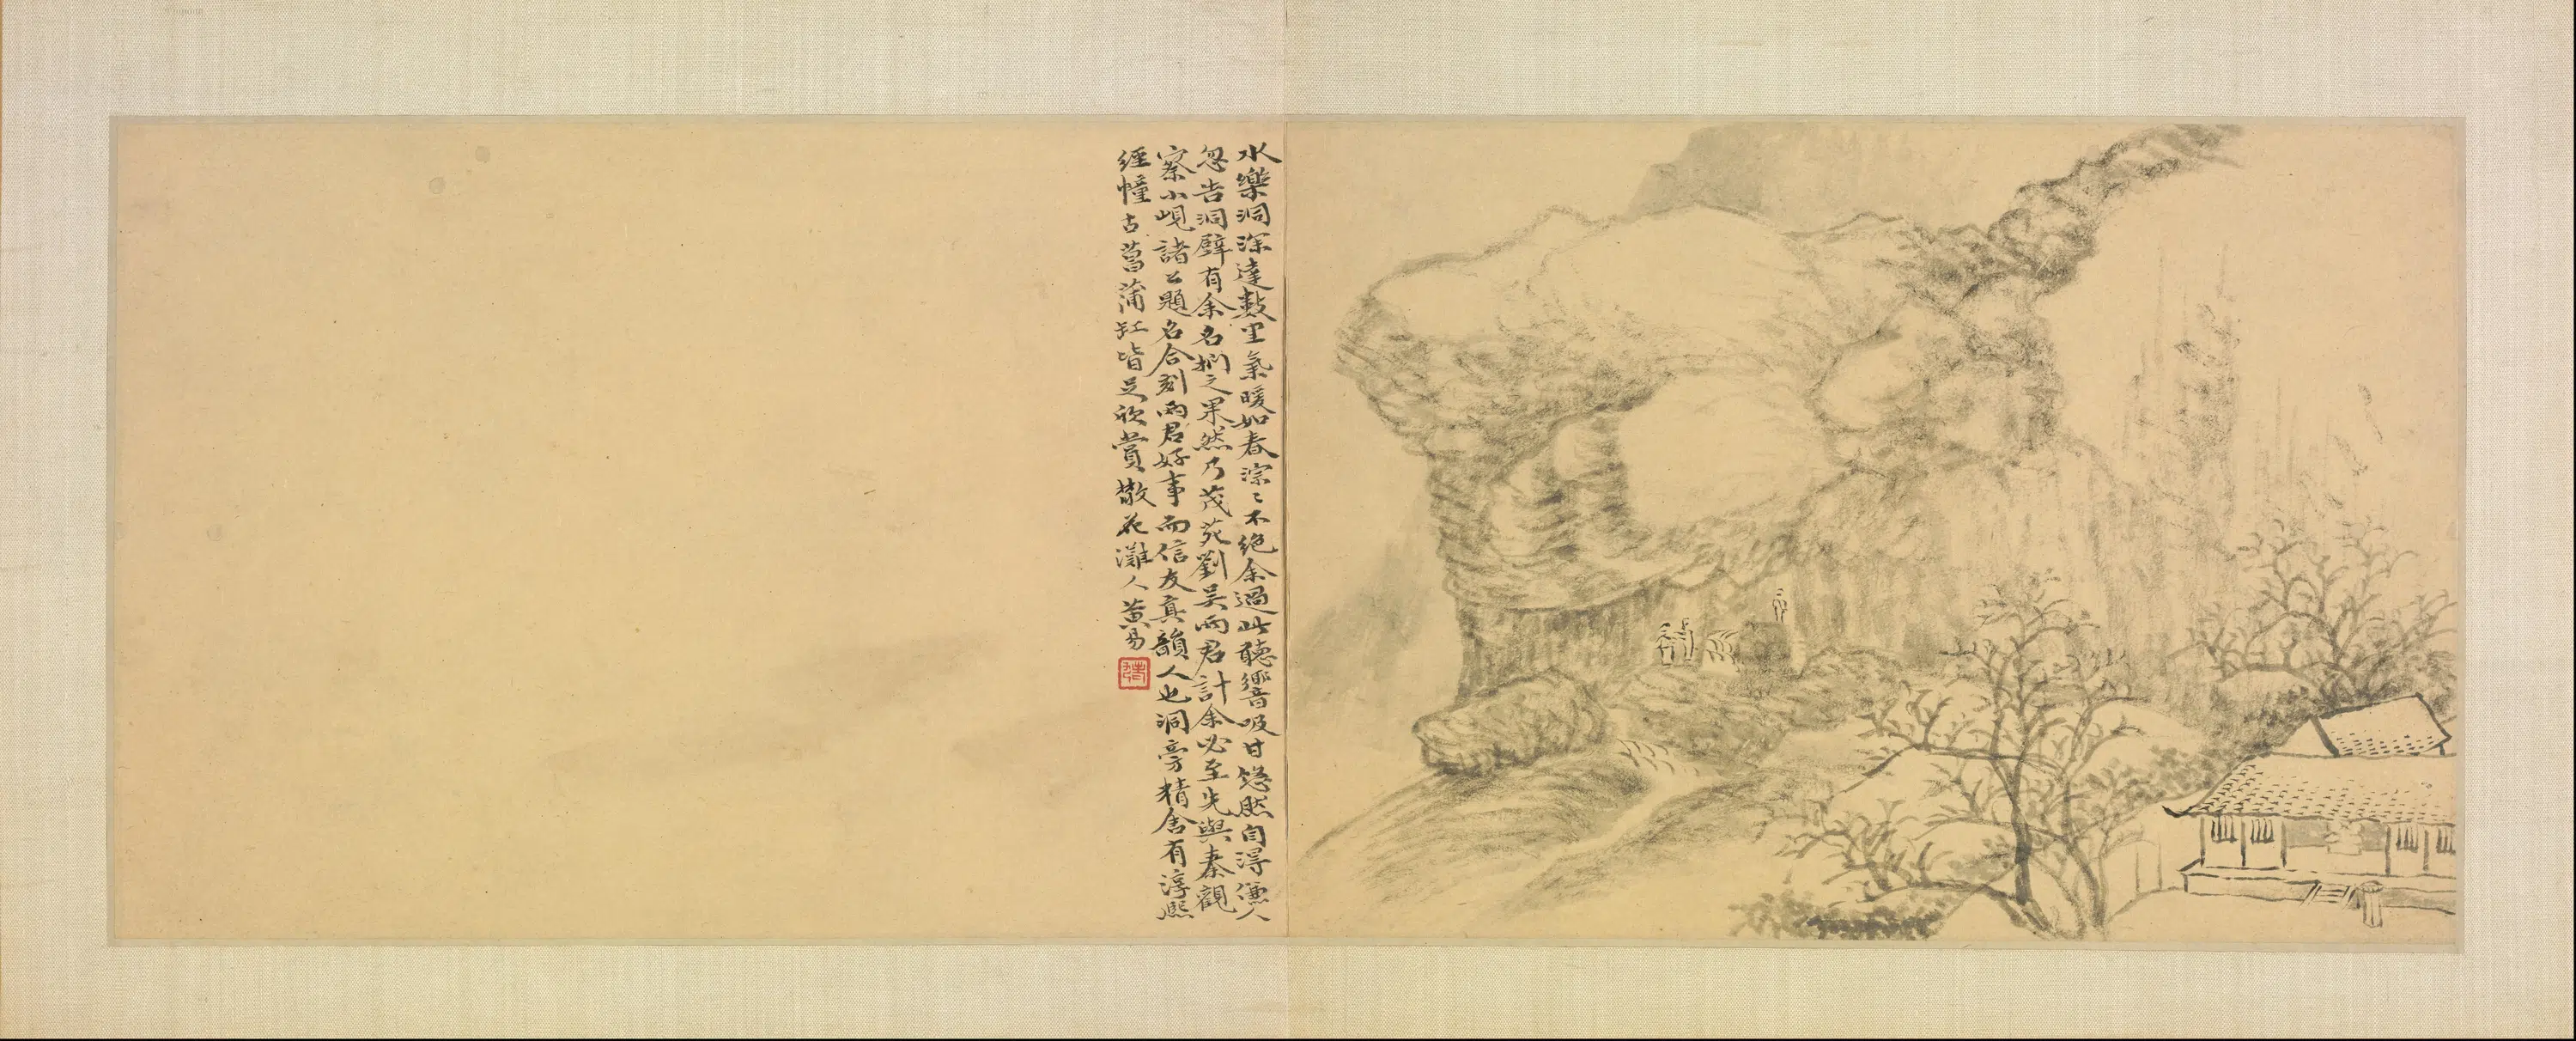 水樂洞深達數里氣暖如春淙〻不絕余過此聽響吸甘悠然自得僮人
忽告洞壁有余名捫之果然乃茂苑劉吳兩君計余必至先與秦觀
察小峴諸公題名合刻兩君好事而信友真韻人也洞旁精舍有淳熙
經幢古菖蒲缸皆足欣賞散花灘人黃易